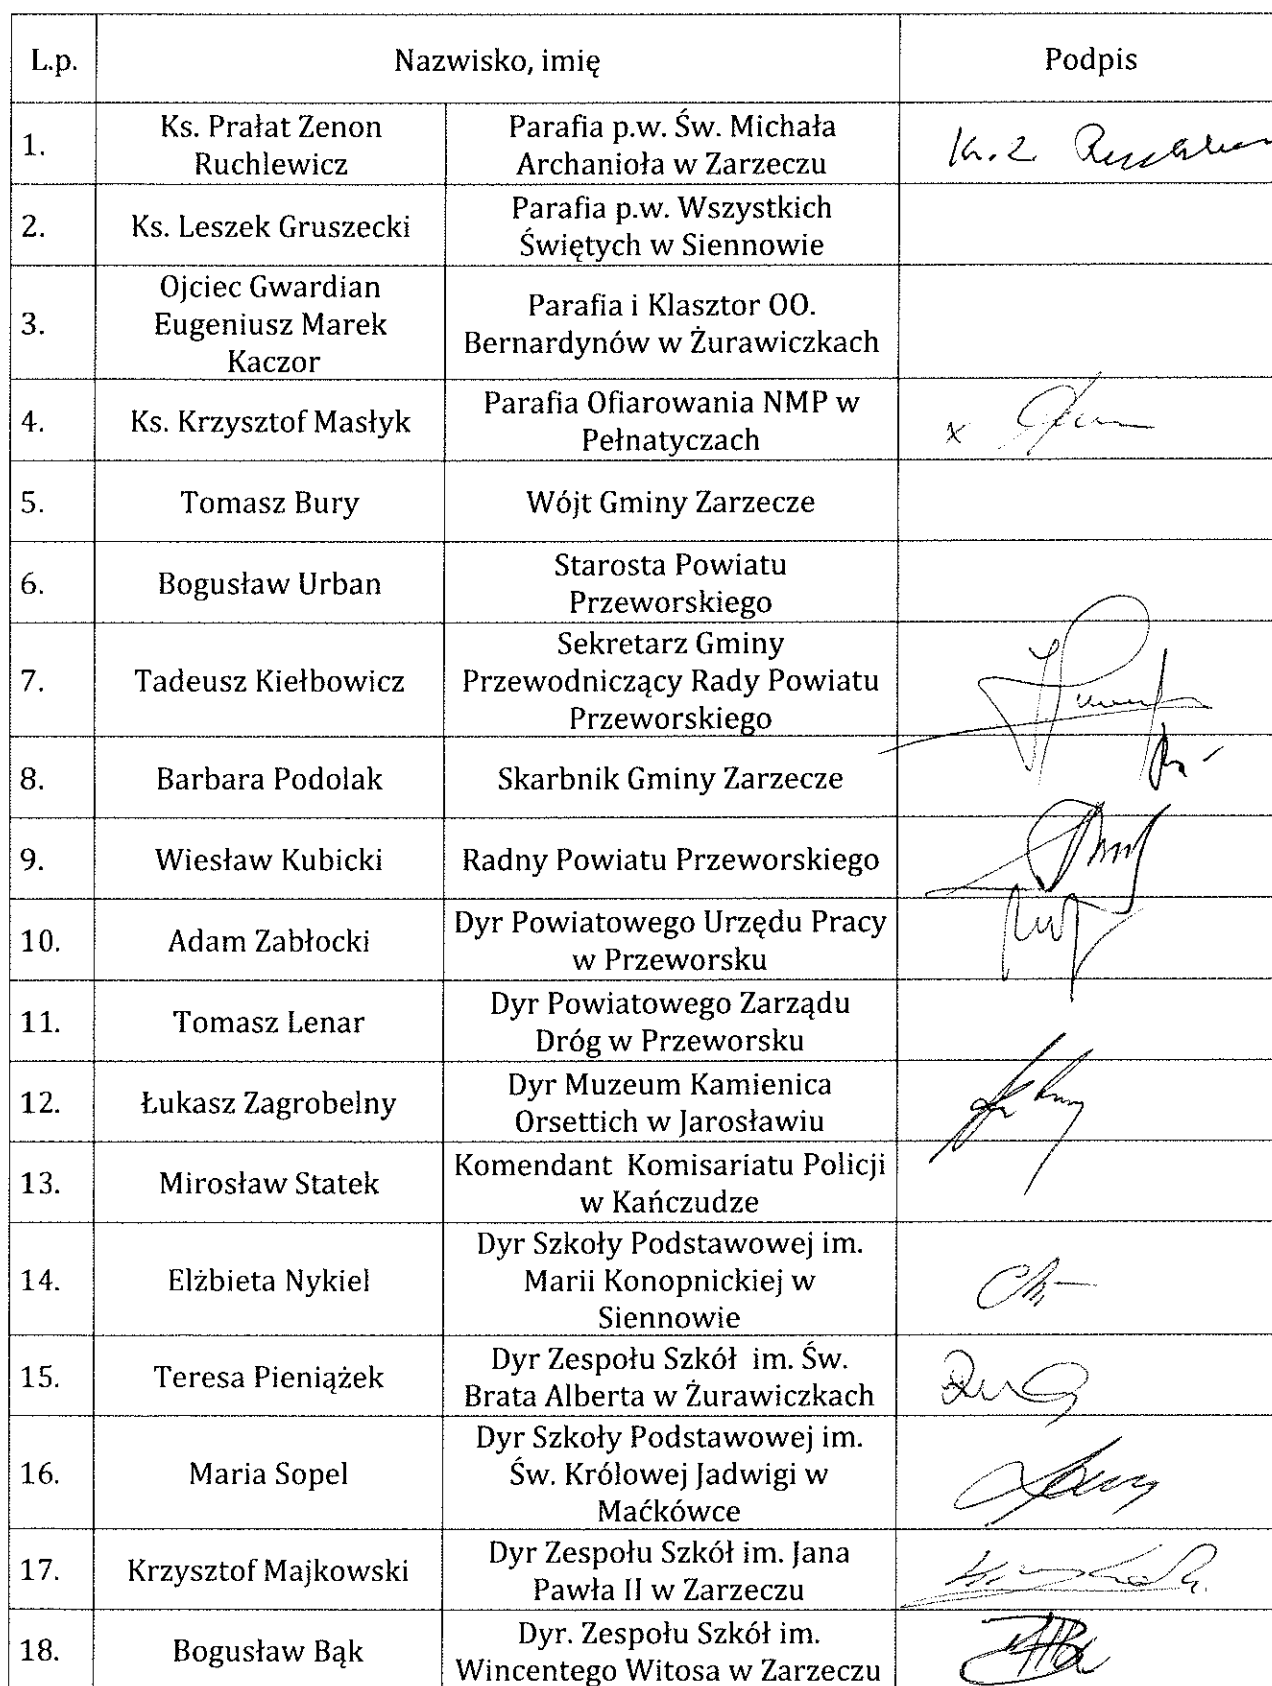 L.p. Nazwisko, imię Podpis
1. Ks. Prałat Zenon Ruchlewicz Parafia p.w. Św. Michała Archanioła w Zarzeczu
2. Ks. Leszek Gruszecki Parafia p.w. Wszystkich Świętych w Siennowie
3. Ojciec Gwardian Eugeniusz Marek Kaczor Parafia i Klasztor OO. Bernardynów w Żurawiczkach
4. Ks. Krzysztof Masłyk Parafia Ofiarowania NMP w Pełnatyczach
5. Tomasz Bury Wójt Gminy Zarzecze
6. Bogusław Urban Starosta Powiatu Przeworskiego
7. Tadeusz Kiełbowicz Sekretarz Gminy Przewodniczący Rady Powiatu Przeworskiego
8. Barbara Podolak Skarbnik Gminy Zarzecze
9. Wiesław Kubicki Radny Powiatu Przeworskiego
10. Adam Zabłocki Dyr Powiatowego Urzędu Pracy w Przeworsku
11. Tomasz Lenar Dyr Powiatowego Zarządu Dróg w Przeworsku
12. Łukasz Zagrobelny Dyr Muzeum Kamienica Orsettich w Jarosławiu
13. Mirosław Statek Komendant Komisariatu Policji w Kańczudze
14. Elżbieta Nykiel Dyr Szkoły Podstawowej im. Marii Konopnickiej w Siennowie
15. Teresa Pieniążek Dyr Zespołu Szkół im. Św. Brata Alberta w Żurawiczkach
16. Maria Sopel Dyr Szkoły Podstawowej im. Św. Królowej Jadwigi w Maćkówce
17. Krzysztof Majkowski Dyr Zespołu Szkół im. Jana Pawła II w Zarzeczu
18. Bogusław Bąk Dyr. Zespołu Szkół im. Wincentego Witosa w Zarzeczu